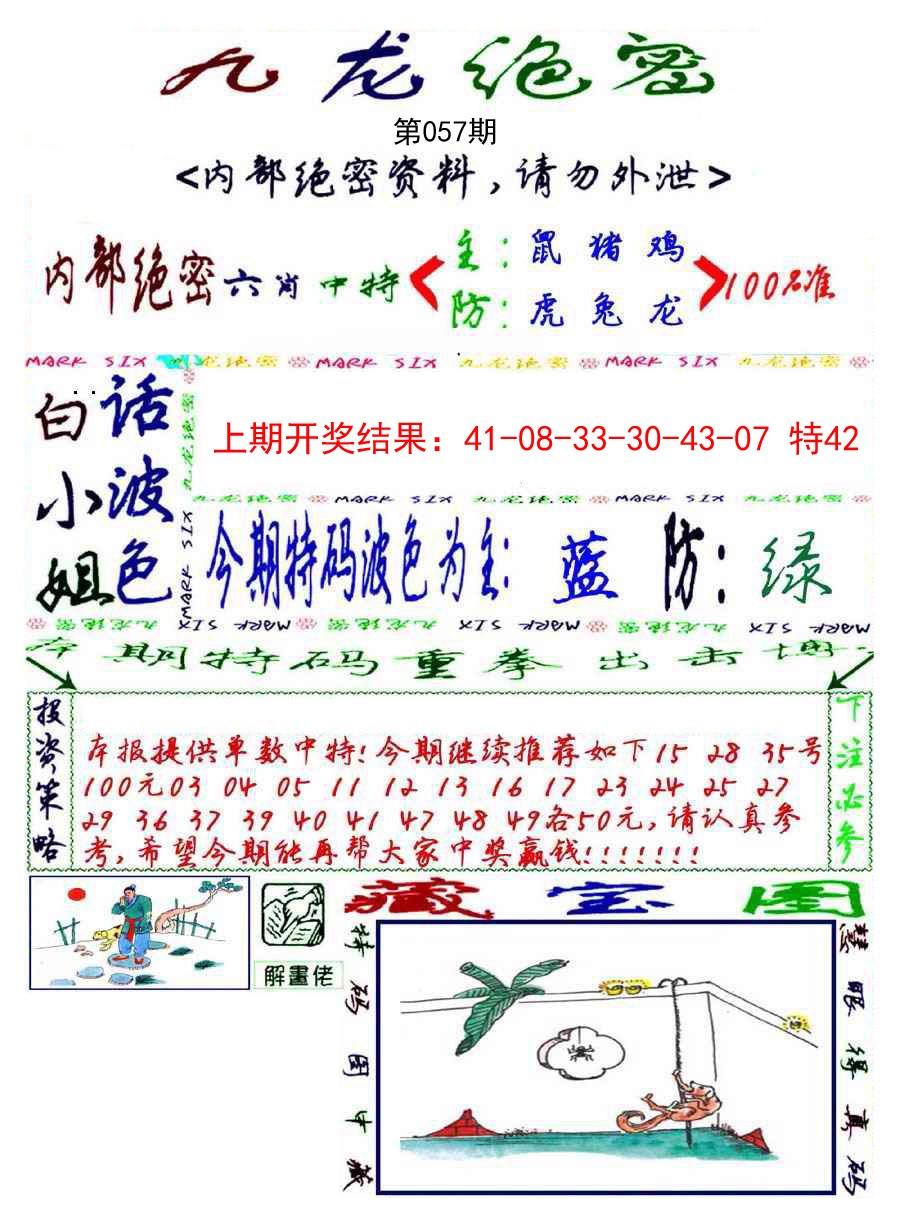 九龙绝密
第057期
<内部绝密资料,请勿外泄>
内部绝密六肖中特
主:鼠 猪 鸡
防:虎 兔 龙
100%准
MARK SIX 九龙绝密 MARK SIX 九龙绝密 MARK SIX 九龙绝密
白小姐
话波色
九龙绝密
MARK SIX
上期开奖结果：41-08-33-30-43-07 特42
九龙绝密 MARK SIX 九龙绝密 MARK SIX 九龙绝密 MARK SIX
今期特码波色为主: 蓝 防: 绿
MARK SIX 九龙绝密 MARK SIX 九龙绝密 MARK SIX 九龙绝密
本期特码重拳出击博
投资策略
本报提供单数中特!今期继续推荐如下15 28 35号
100元03 04 05 11 12 13 16 17 23 24 25 27
29 36 37 39 40 41 47 48 49各50元,请认真参
考,希望今期能再帮大家中奖赢钱!!!!!!!
下注必参
解畫佬
藏宝图
特码图中藏
慧眼得真码